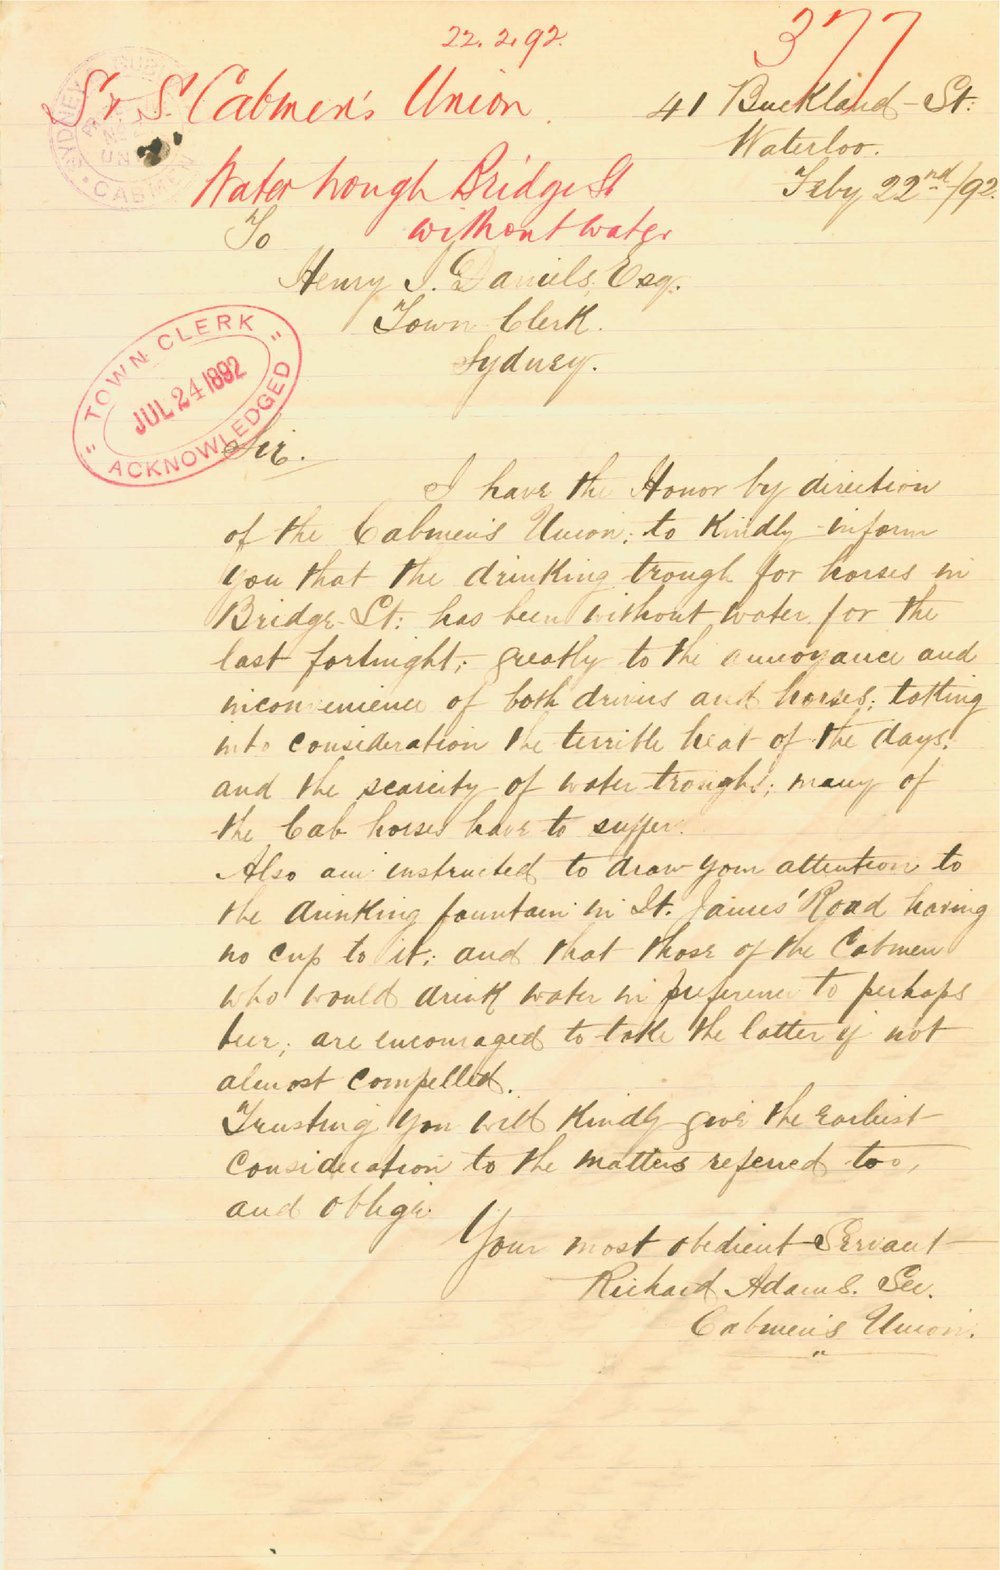 22.2.92.
377
S & S. Cabmen's Union.
41 Buckland-St:
Waterloo.
Feby 22nd/92.
Water trough Bridge St
without water
To
Henry J. Daniels, Esq.
Town Clerk.
Sydney.
"TOWN CLERK"
JUL 24 1892
ACKNOWLEDGED
SYDNEY
CABMEN
Sir.
I have the Honor by direction
of the Cabmen's Union; to kindly inform
you that the drinking trough for horses in
Bridge-St: has been without water for the
last fortnight; greatly to the annoyance and
inconvenience of both drivers and horses; totting
into consideration the terrible heat of the days;
and the scarcity of water troughs; many of
the Cab horses have to suffer.
Also am instructed to draw your attention to
the drinking fountain in St. James' Road having
no cup to it; and that those of the Cabmen
who would drink water in preference to perhaps
beer; are encouraged to take the latter if not
almost compelled.
Trusting you will kindly give the earliest
consideration to the matters referred too,
and oblige.
Your most obedient Servant
Richard Adams. Sec.
Cabmen's Union.